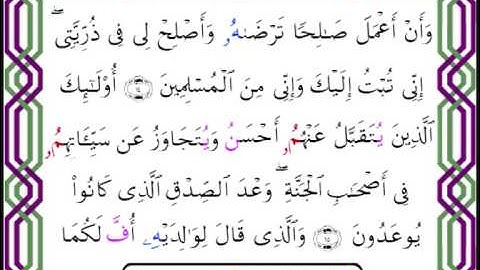 وَأَنْ أَعْمَلَ صَـٰلِحًا تَرْضَىٰهُۥ وَأَصْلِحْ لِى فِى ذُرِّيَّتِىٓ ۖ
إِنِّى تُبْتُ إِلَيْكَ وَإِنِّى مِنَ ٱلْمُسْلِمِينَ ١٤ أُو۟لَـٰٓئِكَ
ٱلَّذِينَ يُتَقَبَّلُ عَنْهُمُۥٓ أَحْسَنُ وَيُتَجَاوَزُ عَن سَيِّـَٔاتِهِمُۥ
فِىٓ أَصْحَـٰبِ ٱلْجَنَّةِ ۖ وَعْدَ ٱلصِّدْقِ ٱلَّذِى كَانُوا۟
يُوعَدُونَ ١٥ وَٱلَّذِى قَالَ لِوَٰلِدَيْهِۦ أُفَّ لَكُمَا